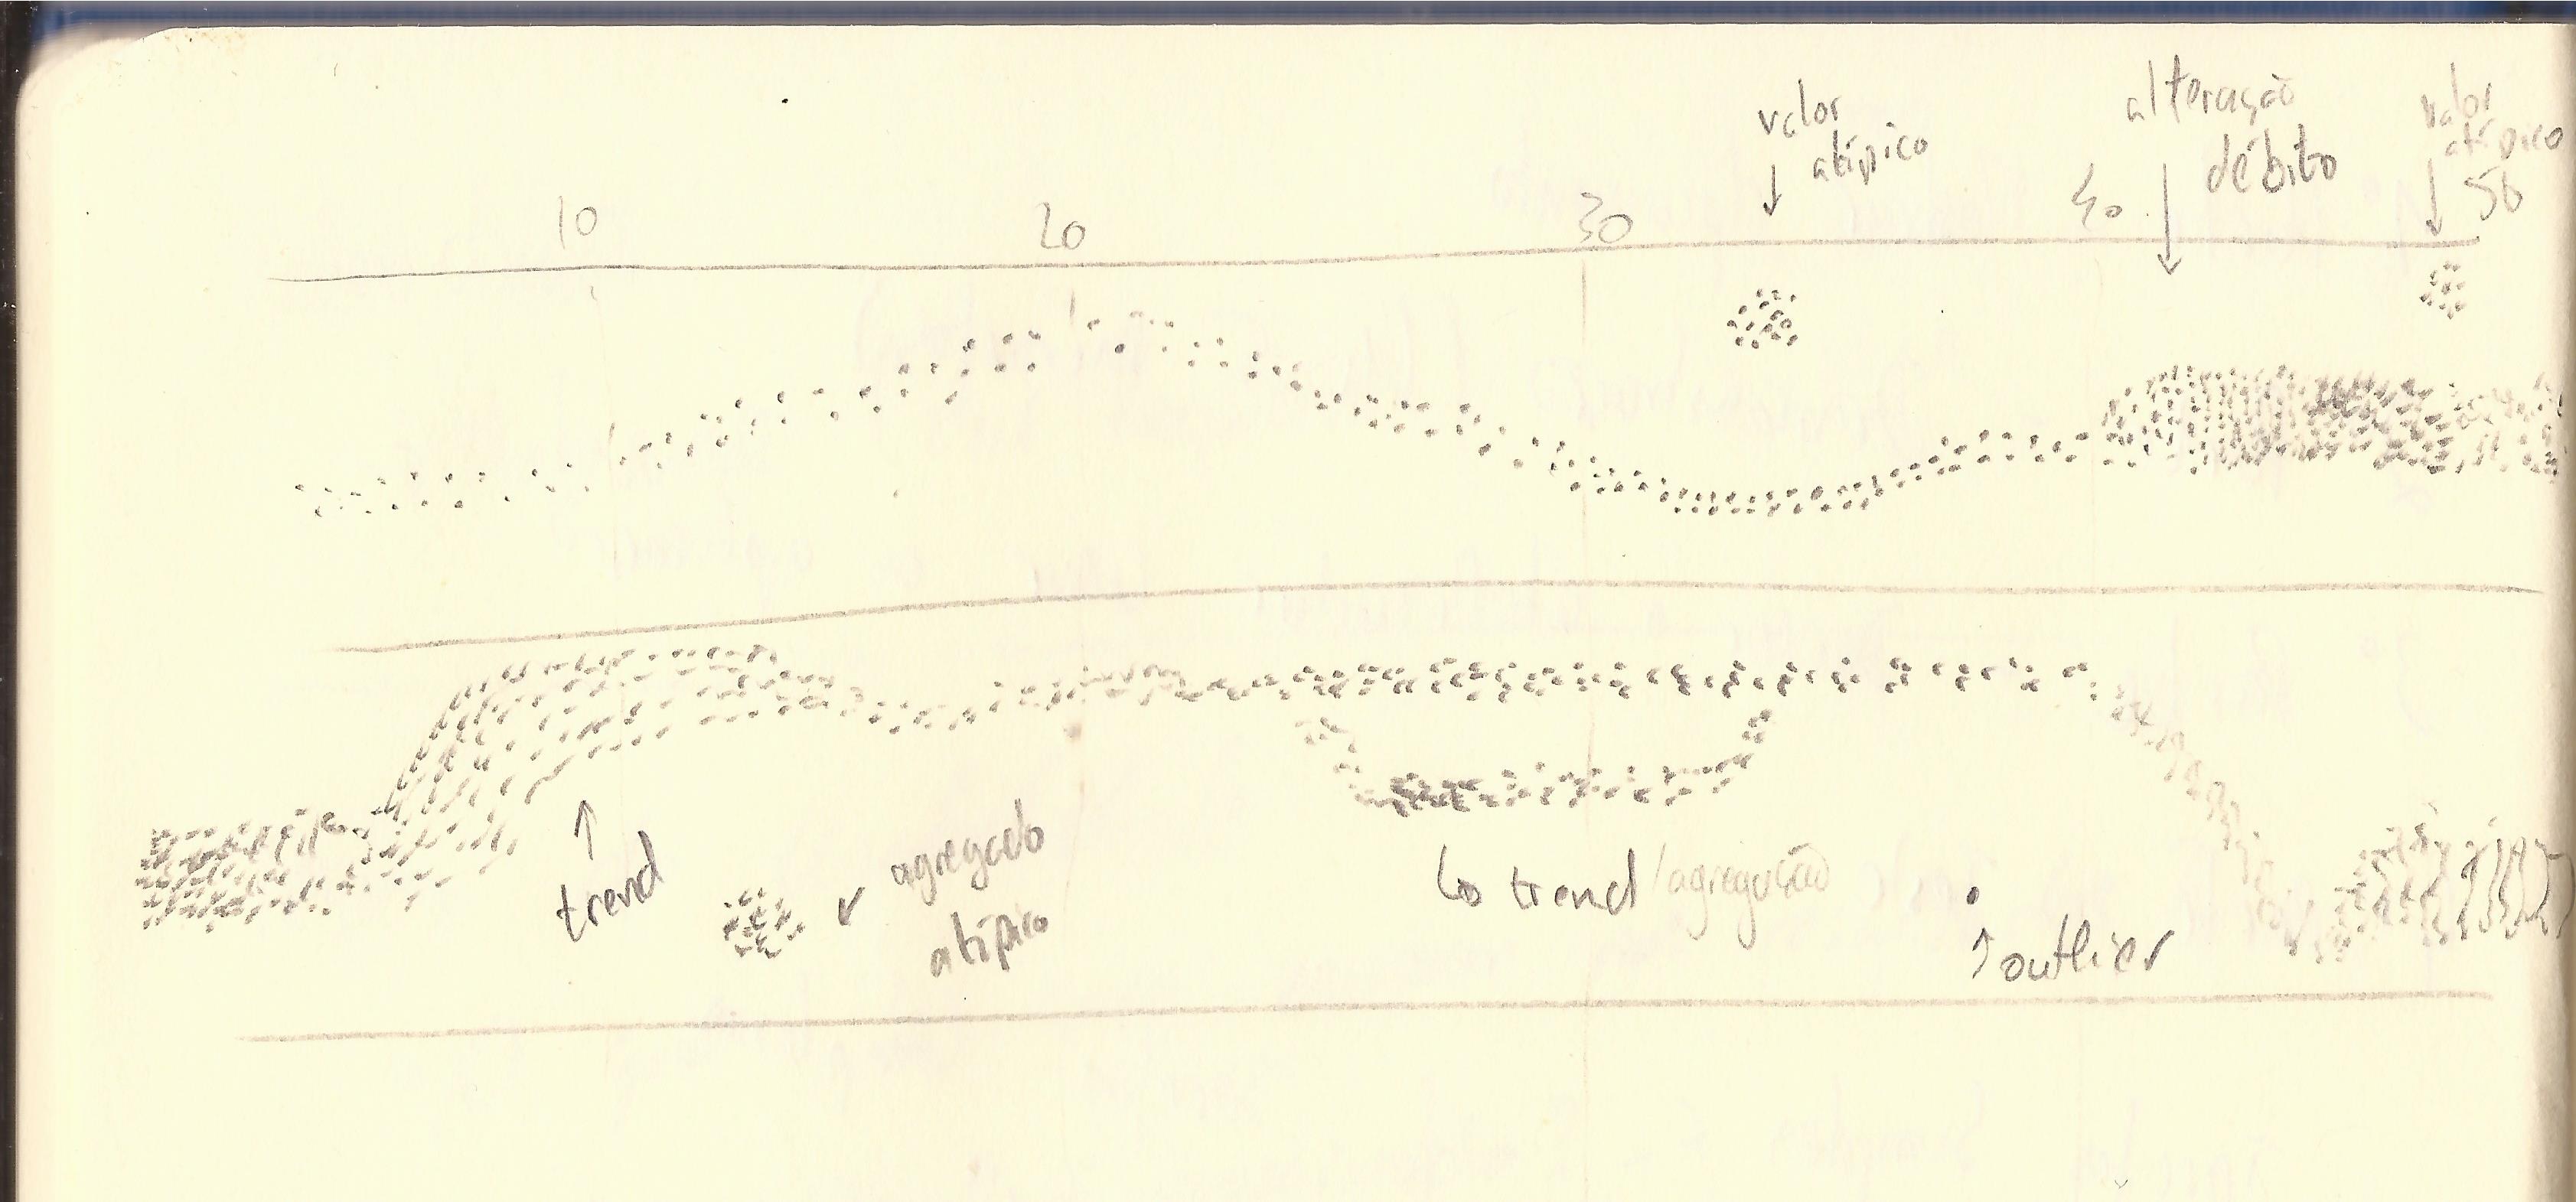 valor
atípico
alteração
débito
valor
atípico
10
20
30
40
50
trend
agregado
atípico
↳ trend /agregação
outlier